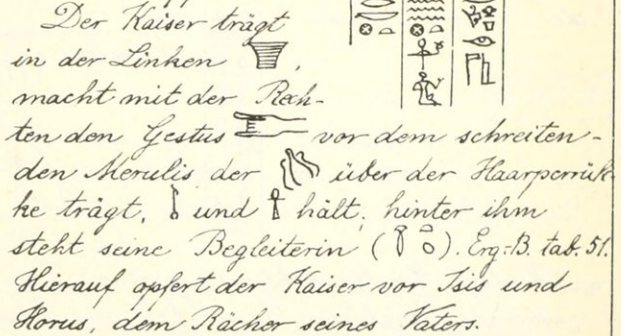 Der Kaiser trägt
in der Linken ,
macht mit der Rech-
ten den Gestus vor dem schreiten-
den Merulis der über der Haarperrük-
ke trägt, und hält, hinter ihm
steht seine Begleiterin ( ). Erg:B. tab. 51.
Hierauf opfert der Kaiser vor Isis und
Horus, dem Rächer seines Vaters.